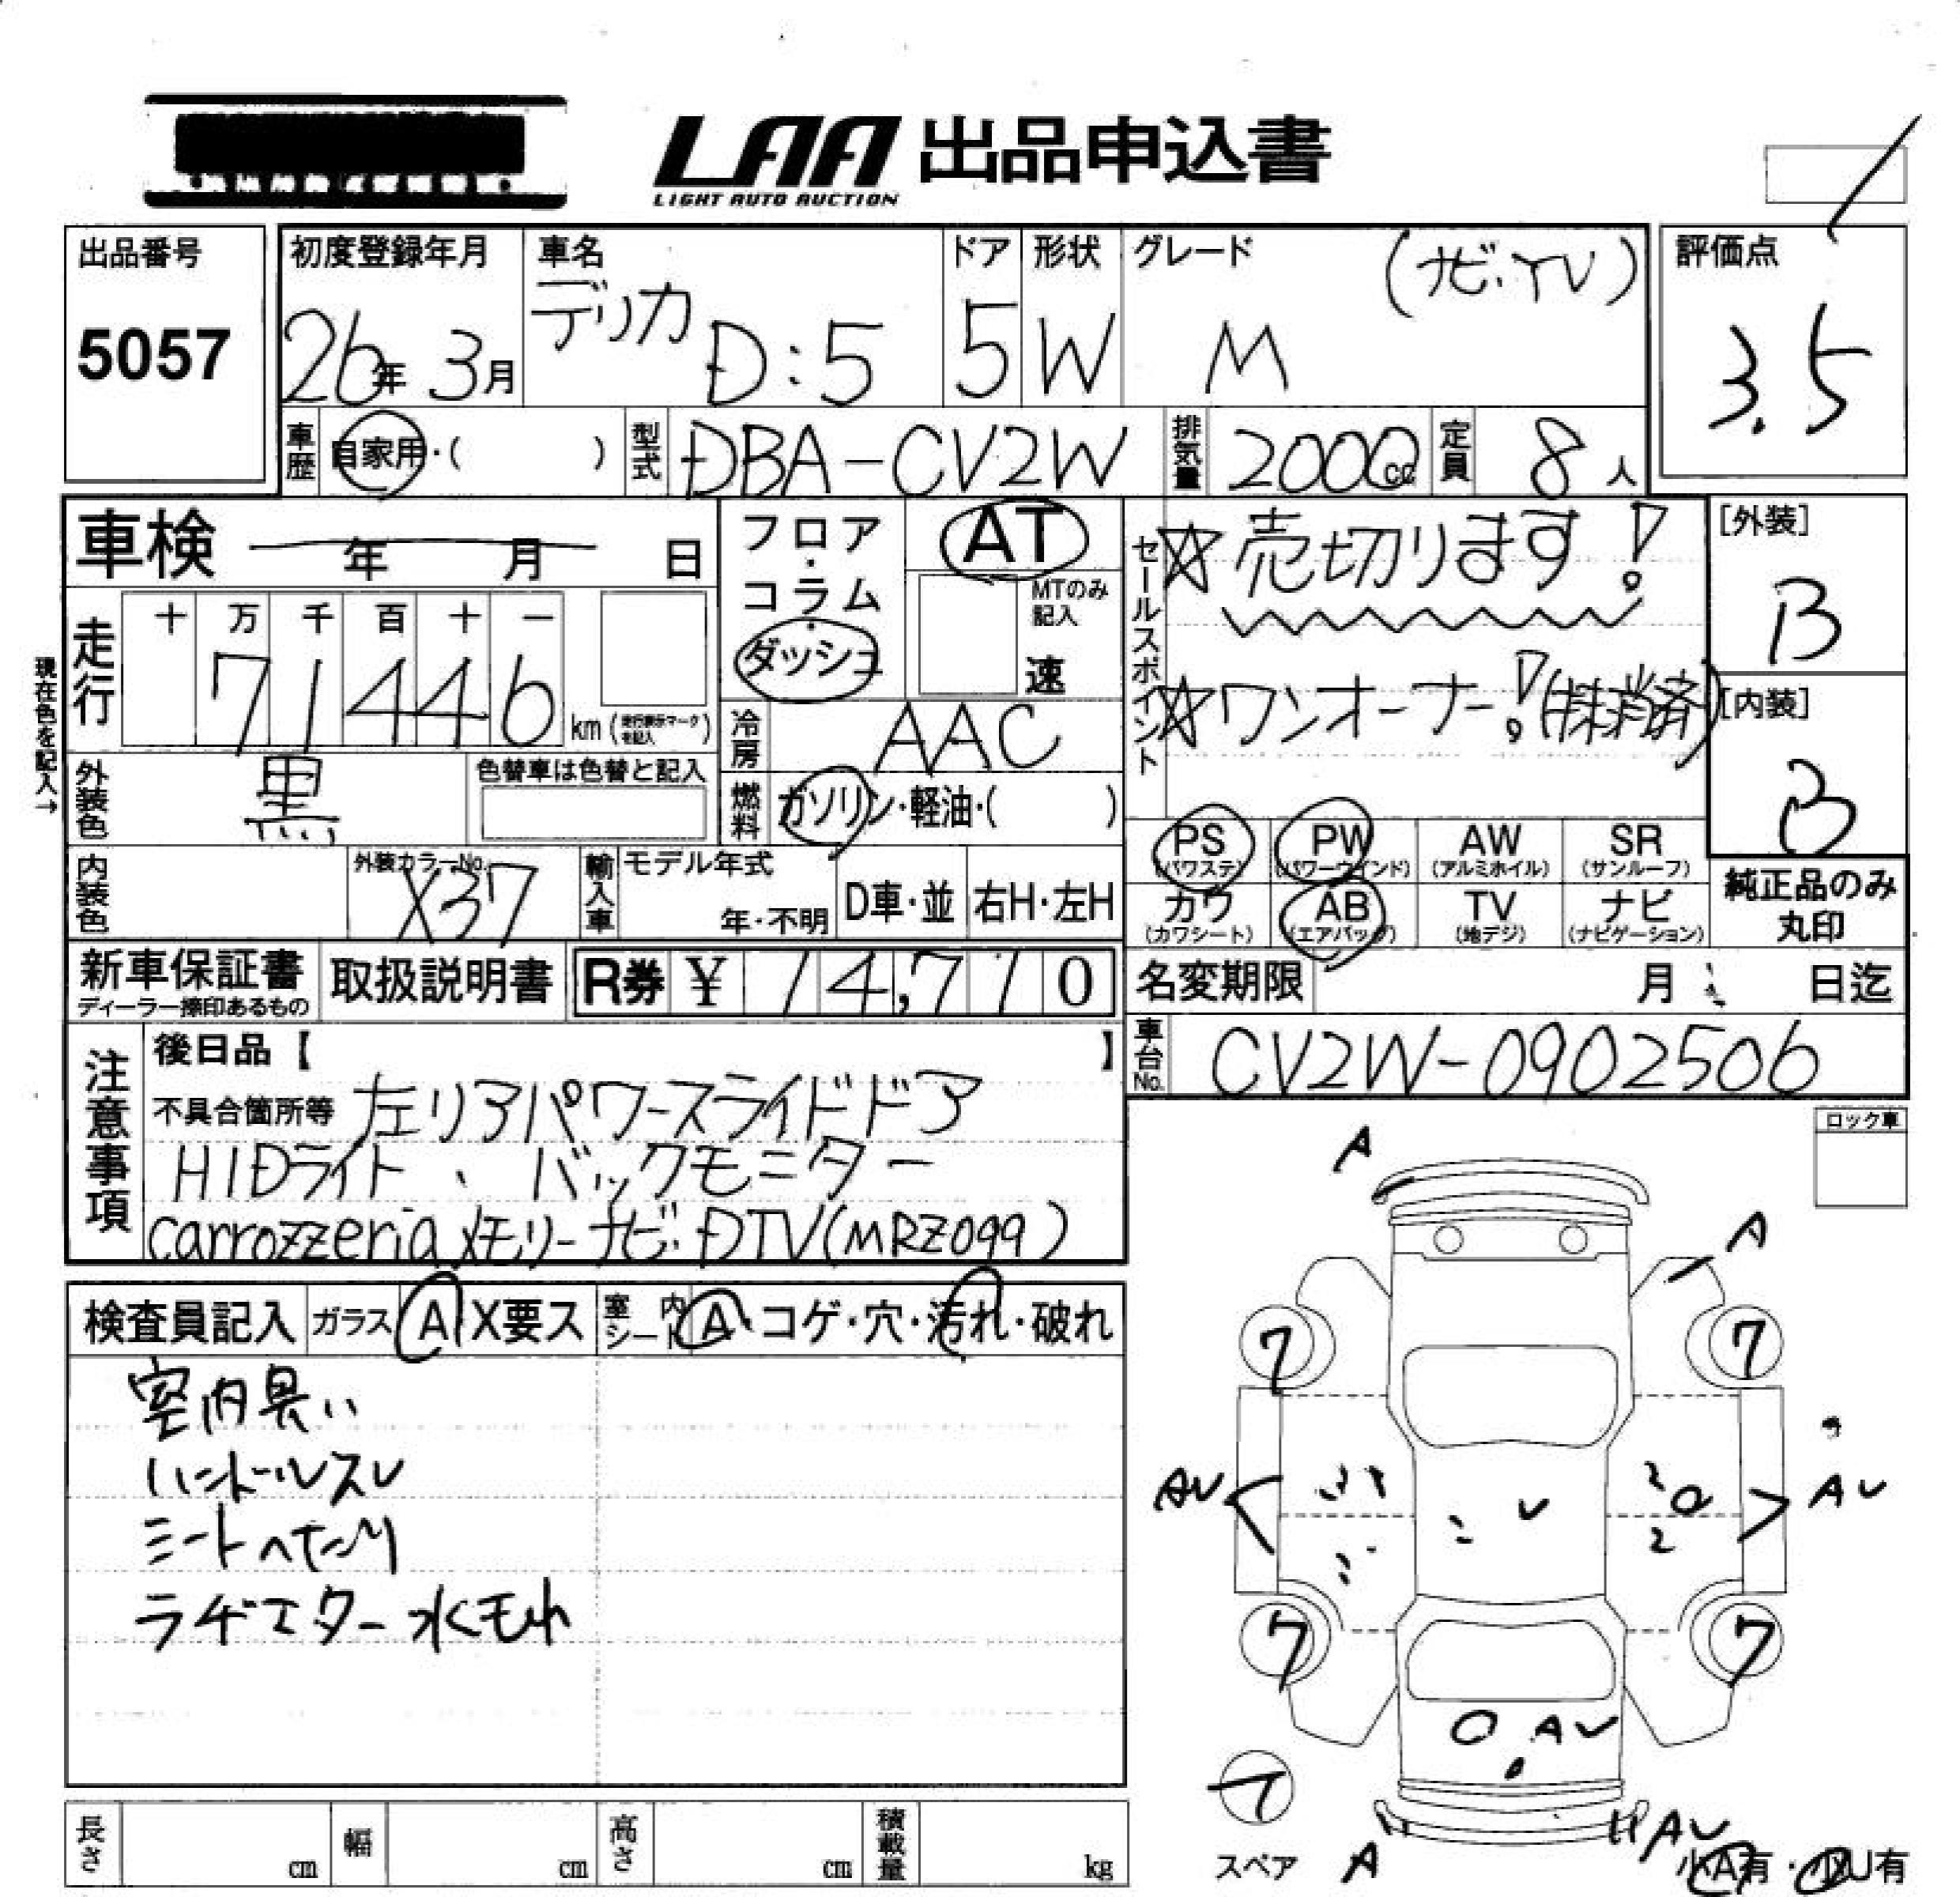 LAA 出品申込書
LIGHT AUTO AUCTION
出品番号
5057
初度登録年月
26年 3月
車名
デリカ D:5
ドア
5
形状
W
グレード
(ナビ・TV)
M
評価点
3.5
車歴 自家用・( )
型式 DBA-CV2W
排気量 2000cc
定員 8人
車検 年 月 日
走行
十 万 千 百 十 一
7 1 4 4 6
km(走行表示マークを記入)
現在色を記入→
外装色 黒
色替車は色替と記入
内装色
外装カラーNo.
X37
フロア・コラム・ダッシュ
AT
MTのみ記入
速
冷房 AAC
燃料 ガソリン・軽油・( )
輸入車
モデル年式
年・不明
D車・並
右H・左H
セールスポイント
☆売切ります!
☆ワンオーナー!(抹消済)
[外装]
B
[内装]
B
PS (パワステ)
PW (パワーウインド)
AW (アルミホイル)
SR (サンルーフ)
カワ (カワシート)
AB (エアバッグ)
TV (地デジ)
ナビ (ナビゲーション)
純正品のみ丸印
新車保証書
ディーラー捺印あるもの
取扱説明書
R券 ¥ 14,710
名変期限 月 日迄
車台No. CV2W-0902506
注意事項
後日品【 】
不具合箇所等 左リアパワースライドドア
HIDライト、バックモニター
carrozzeriaメモリーナビ・DTV(MRZ099)
ロック車
検査員記入
ガラス A X要ス
室内シート A・コゲ・穴・汚れ・破れ
室内臭い
ハンドルスレ
シートヘたり
ラヂエター水もれ
A
A
7
7
AU
AU
7
7
AU
スペア
A
AU
小A有・小U有
長さ cm
幅 cm
高さ cm
積載量 kg